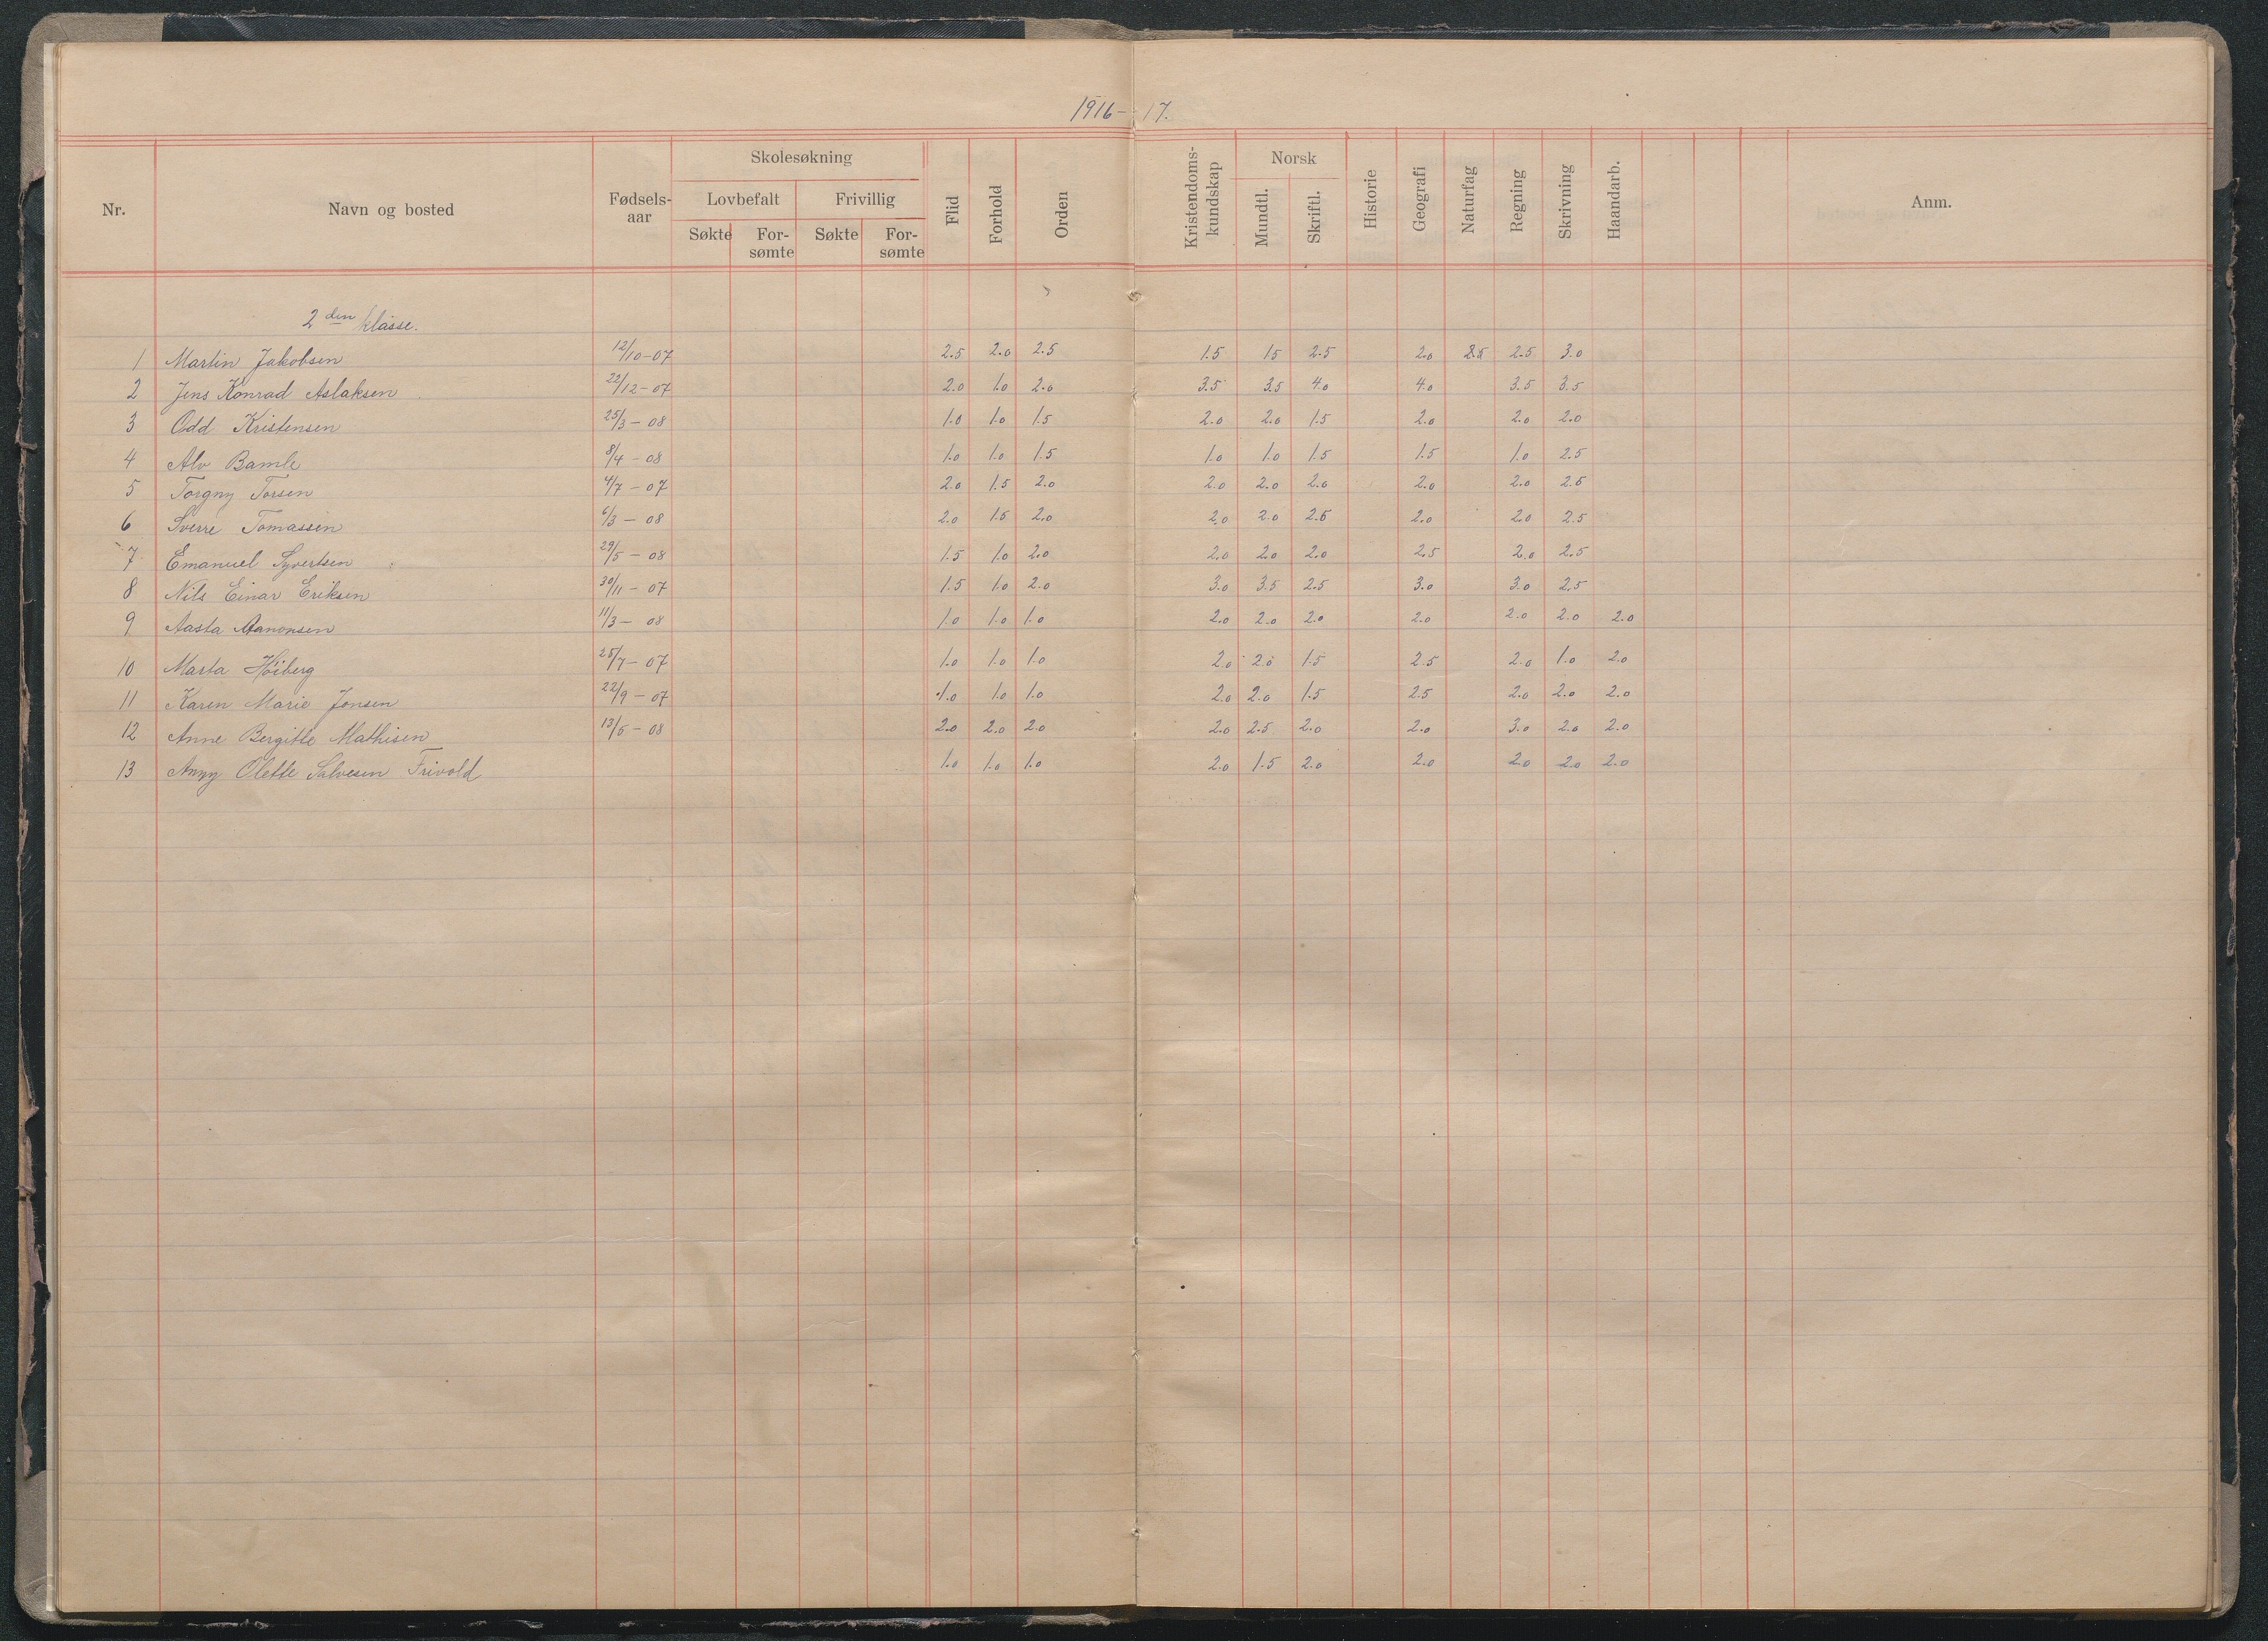 1916-17.
Nr. Navn og bosted Fødsels-aar Skolesøkning Lovbefalt Søkte For-sømte Frivillig Søkte For-sømte Flid Forhold Orden Kristendoms-kundskap Norsk Mundtl. Skriftl. Historie Geografi Naturfag Regning Skrivning Haandarb. Anm.
2den klasse.
1 Martin Jakobsen 12/10-07 2.5 2.0 2.5 1.5 1.5 2.5 2.0 2.5 2.5 3.0
2 Jens Konrad Aslaksen 22/12-07 2.0 1.0 2.0 3.5 3.5 4.0 4.0 3.5 3.5
3 Odd Kristensen 25/3-08 1.0 1.0 1.5 2.0 2.0 1.5 2.0 2.0 2.0
4 Alv Bamle 8/4-08 1.0 1.0 1.5 1.0 1.0 1.5 1.5 1.0 2.5
5 Torgny Torsen 4/7-07 2.0 1.5 2.0 2.0 2.0 2.0 2.0 2.0 2.5
6 Sverre Tomassen 6/3-08 2.0 1.5 2.0 2.0 2.0 2.5 2.0 2.0 2.5
7 Emanuel Syvertsen 29/5-08 1.5 1.0 2.0 2.0 2.0 2.0 2.5 2.0 2.5
8 Nils Einar Eriksen 30/11-07 1.5 1.0 2.0 3.0 3.5 2.5 3.0 3.0 2.5
9 Aasta Aanonsen 11/3-08 1.0 1.0 1.0 2.0 2.0 2.0 2.0 2.0 2.0 2.0
10 Marta Höiberg 25/7-07 1.0 1.0 1.0 2.0 2.0 1.5 2.5 2.0 1.0 2.0
11 Karen Marie Jensen 22/9-07 1.0 1.0 1.0 2.0 2.0 1.5 2.5 2.0 2.0 2.0
12 Anne Bergitte Mathisen 13/5-08 2.0 2.0 2.0 2.0 2.5 2.0 2.0 3.0 2.0 2.0
13 Anny Olette Salvesen Frivold 1.0 1.0 1.0 2.0 1.5 2.0 2.0 2.0 2.0 2.0